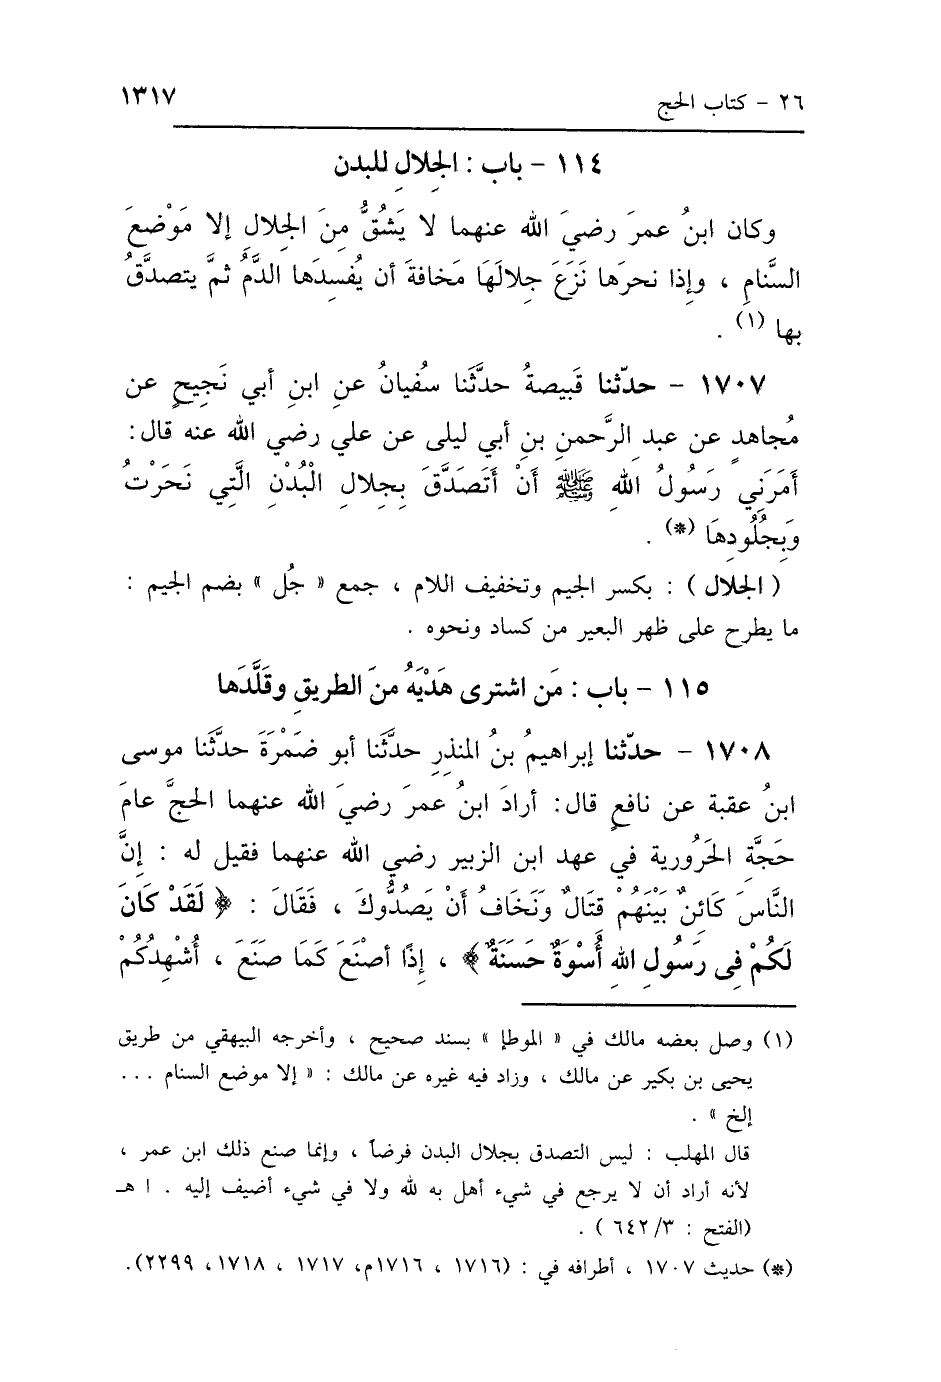 ٢٦ - كتاب الحج ١٣١٧
١١٤ - باب : الجِلالِ للبدن
وكان ابنُ عمرَ رضيَ الله عنهما لا يَشُقُّ مِنَ الجِلالِ إلا مَوْضعَ
السَّنامِ ، وإذا نحرَها نَزَعَ جِلالَهَا مَخافةَ أن يُفسِدَها الدَّمُ ثمَّ يتصدَّقُ
بها (١) .
١٧٠٧ - حدّثنا قَبيصةُ حدَّثَنا سُفيانُ عنِ ابنِ أبي نَجيحٍ عن
مُجاهدٍ عن عبد الرَّحمنِ بنِ أبي ليلى عن علي رضي الله عنه قال:
أَمَرَنِي رَسُولُ اللهِ ﷺ أَنْ أَتَصَدَّقَ بِجِلالِ الْبُدْنِ الَّتِي نَحَرْتُ
وَبِجُلُودِهَا (*) .
( الجلال ) : بكسر الجيم وتخفيف اللام ، جمع « جُل » بضم الجيم :
ما يطرح على ظهر البعير من كساد ونحوه .
١١٥ - باب : مَن اشترى هَدْيَهُ منَ الطريقِ وقَلَّدَها
١٧٠٨ - حدّثنا إبراهيمُ بنُ المنذِرِ حدَّثَنا أبو ضَمْرَةَ حدَّثَنا موسى
ابنُ عقبة عن نافعٍ قال: أرادَ ابنُ عمرَ رضيَ الله عنهما الحجَّ عامَ
حَجَّةِ الحَرُورية في عهد ابن الزبير رضي الله عنهما فقيل له : إنَّ
النَّاسَ كَائِنٌ بَيْنَهُمْ قِتَالٌ وَنَخَافُ أَنْ يَصُدُّوكَ ، فَقَالَ : ﴿ لَقَدْ كَانَ
لَكُمْ فِي رَسُولِ اللهِ أُسْوَةٌ حَسَنَةٌ ﴾ ، إِذًا أصْنَعَ كَمَا صَنَعَ ، أُشْهِدُكُمْ
(١) وصل بعضه مالك في « الموطإ » بسند صحيح ، وأخرجه البيهقي من طريق
يحيى بن بكير عن مالك ، وزاد فيه غيره عن مالك : « إلا موضع السنام ...
إلخ » .
قال المهلب : ليس التصدق بجلال البدن فرضاً ، وإنما صنع ذلك ابن عمر ،
لأنه أراد أن لا يرجع في شيء أهل به لله ولا في شيء أضيف إليه . ا هـ
(الفتح : ٦٤٢/٣ ) .
(*) حديث ١٧٠٧ ، أطرافه في : (١٧١٦ ، ١٧١٦م، ١٧١٧ ، ١٧١٨، ٢٢٩٩).